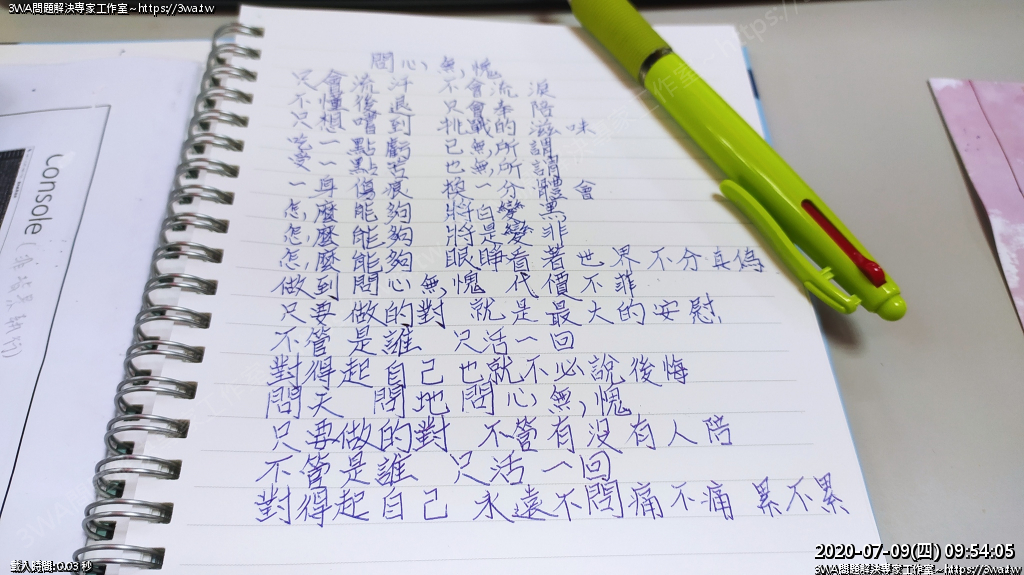 3WA問題解決專家工作室~https://3wa.tw
問心無愧
只會流汗 不會流淚
不懂後退 只會奉陪
只想嚐到 挑戰的滋味
吃一點虧 已無所謂
受一點苦 也無所謂
一身傷痕 換一分體會
怎麼能夠 將白變黑
怎麼能夠 將是變非
怎麼能夠 眼睜看著世界不分真偽
做到問心無愧 代價不菲
只要做的對 就是最大的安慰
不管是誰 只活一回
對得起自己也就不必說後悔
問天 問地問心無愧
只要做的對 不管有沒有人陪
不管是誰 只活一回
對得起自己 永遠不問痛不痛 累不累
console
載入時間:0.03 秒
2020-07-09(四) 09:54:05
3WA問題解決專家工作室~https://3wa.tw